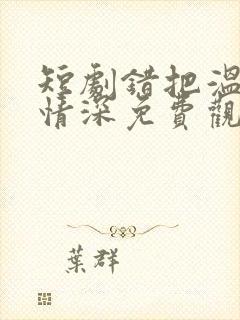 短劇錯把溫
情深免費觀
葉群